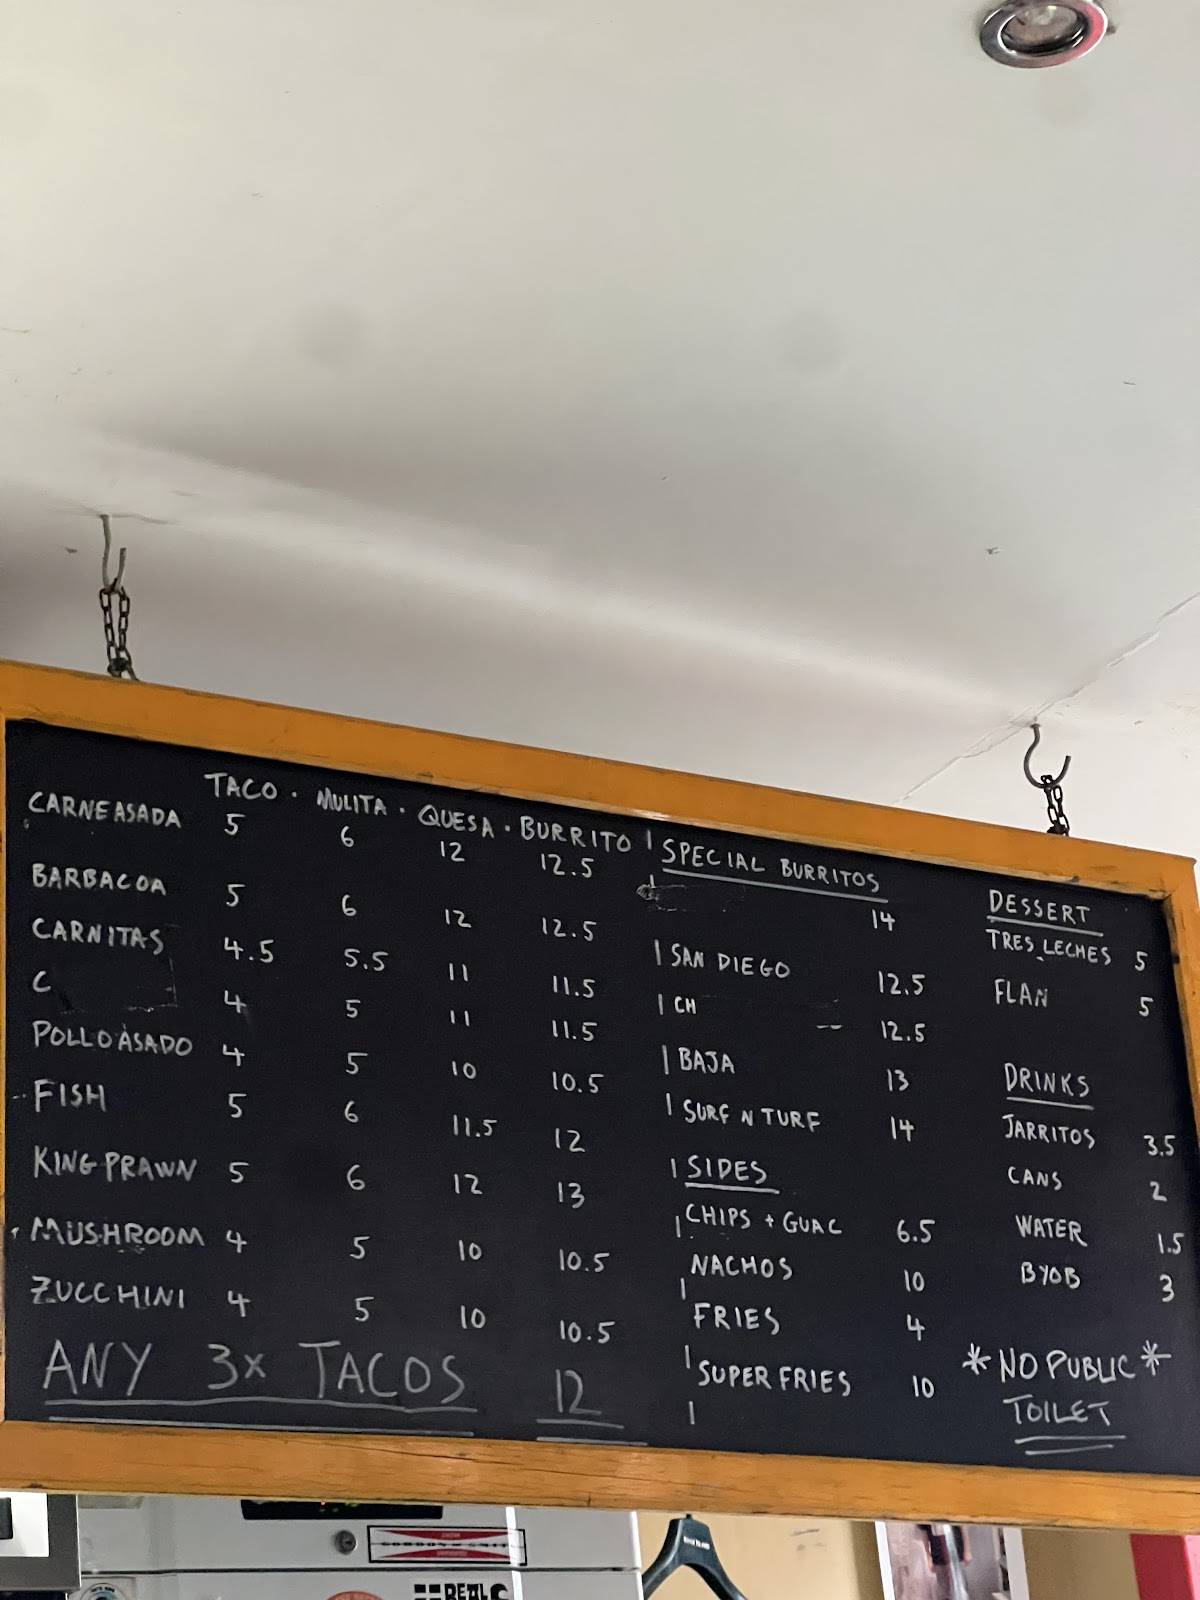 TACO · MULITA · QUESA · BURRITO
CARNE ASADA 5 6 12 12.5
BARBACOA 5 6 12 12.5
CARNITAS 4.5 5.5 11 11.5
C 4 5 11 11.5
POLLO ASADO 4 5 10 10.5
FISH 5 6 11.5 12
KING PRAWN 5 6 12 13
MUSHROOM 4 5 10 10.5
ZUCCHINI 4 5 10 10.5
ANY 3x TACOS 12
SPECIAL BURRITOS
14
SAN DIEGO 12.5
CH 12.5
BAJA 13
SURF N TURF 14
SIDES
CHIPS + GUAC 6.5
NACHOS 10
FRIES 4
SUPER FRIES 10
DESSERT
TRES LECHES 5
FLAN 5
DRINKS
JARRITOS 3.5
CANS 2
WATER 1.5
BYOB 3
*NO PUBLIC*
TOILET
REAL